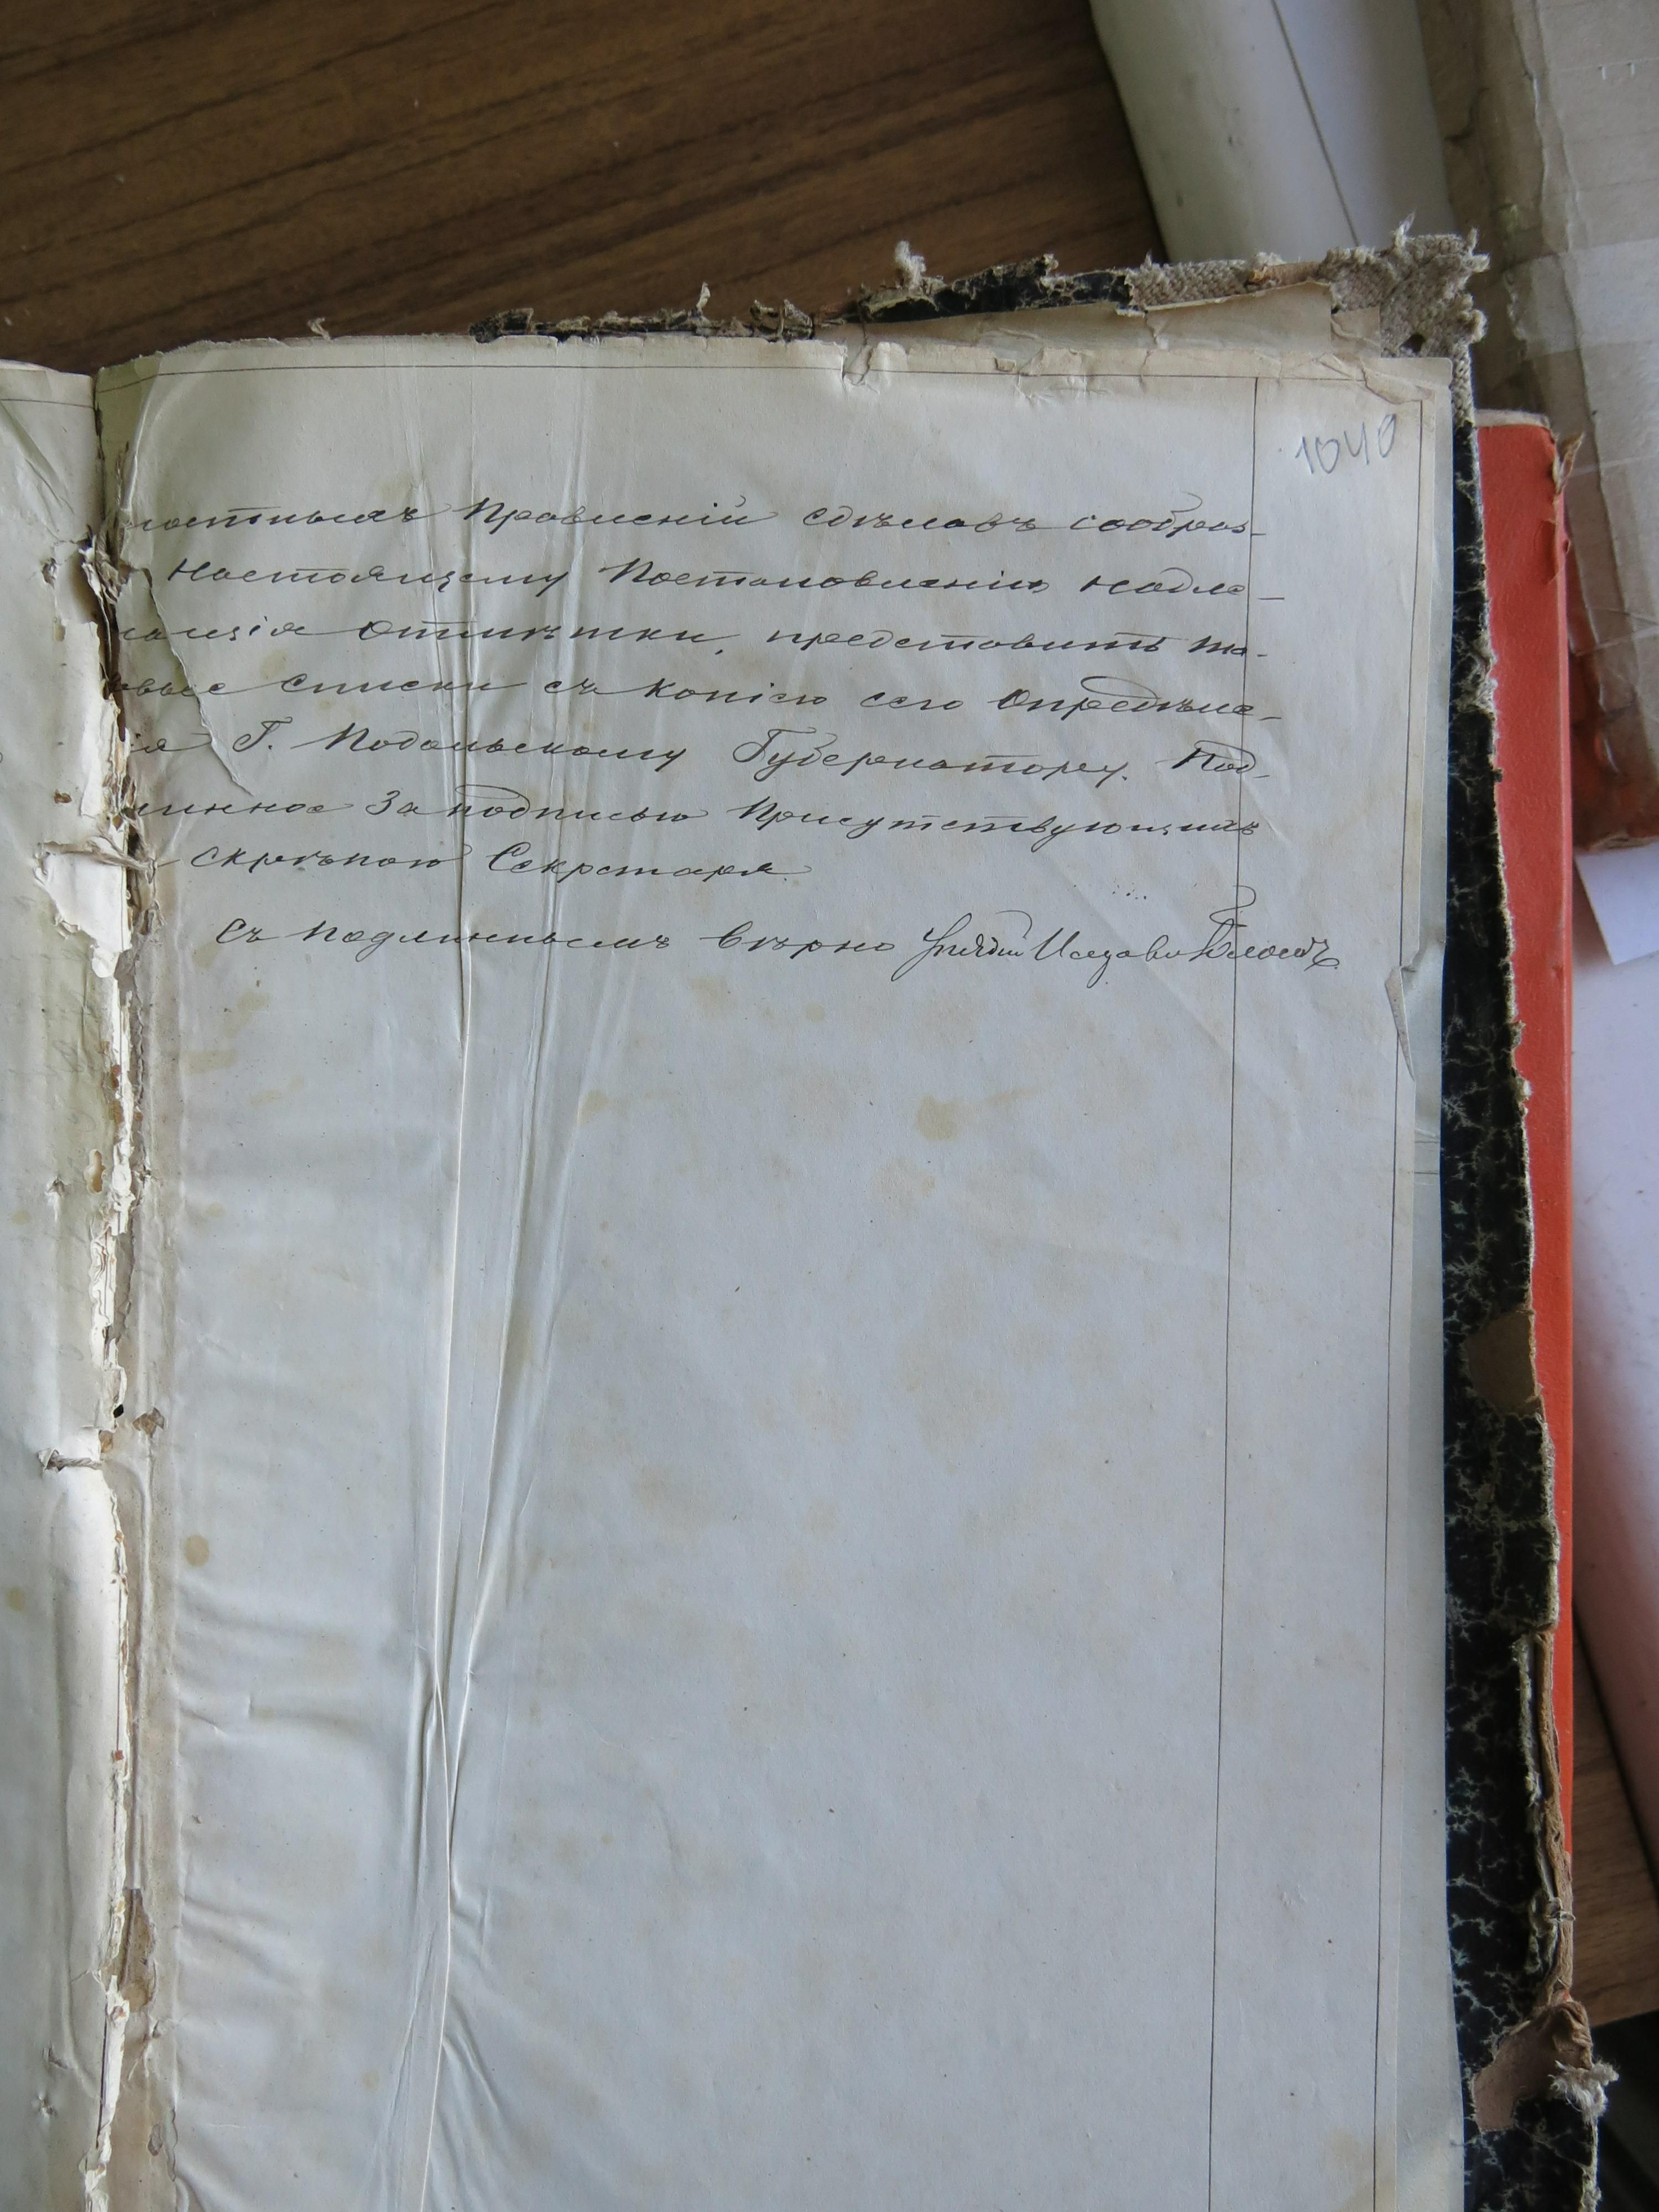 1040
лостныхъ Правленій сдѣлавъ сообраз-
Настоящему Постановленію надле-
жащія отмѣтки, представить та-
ковые списки съ копіею сего Опредѣле-
нія Г. Подольскому Губернатору. Под-
линное за подписью Присутствующихъ
скрѣпою Секретаря.
Съ подлиннымъ вѣрно